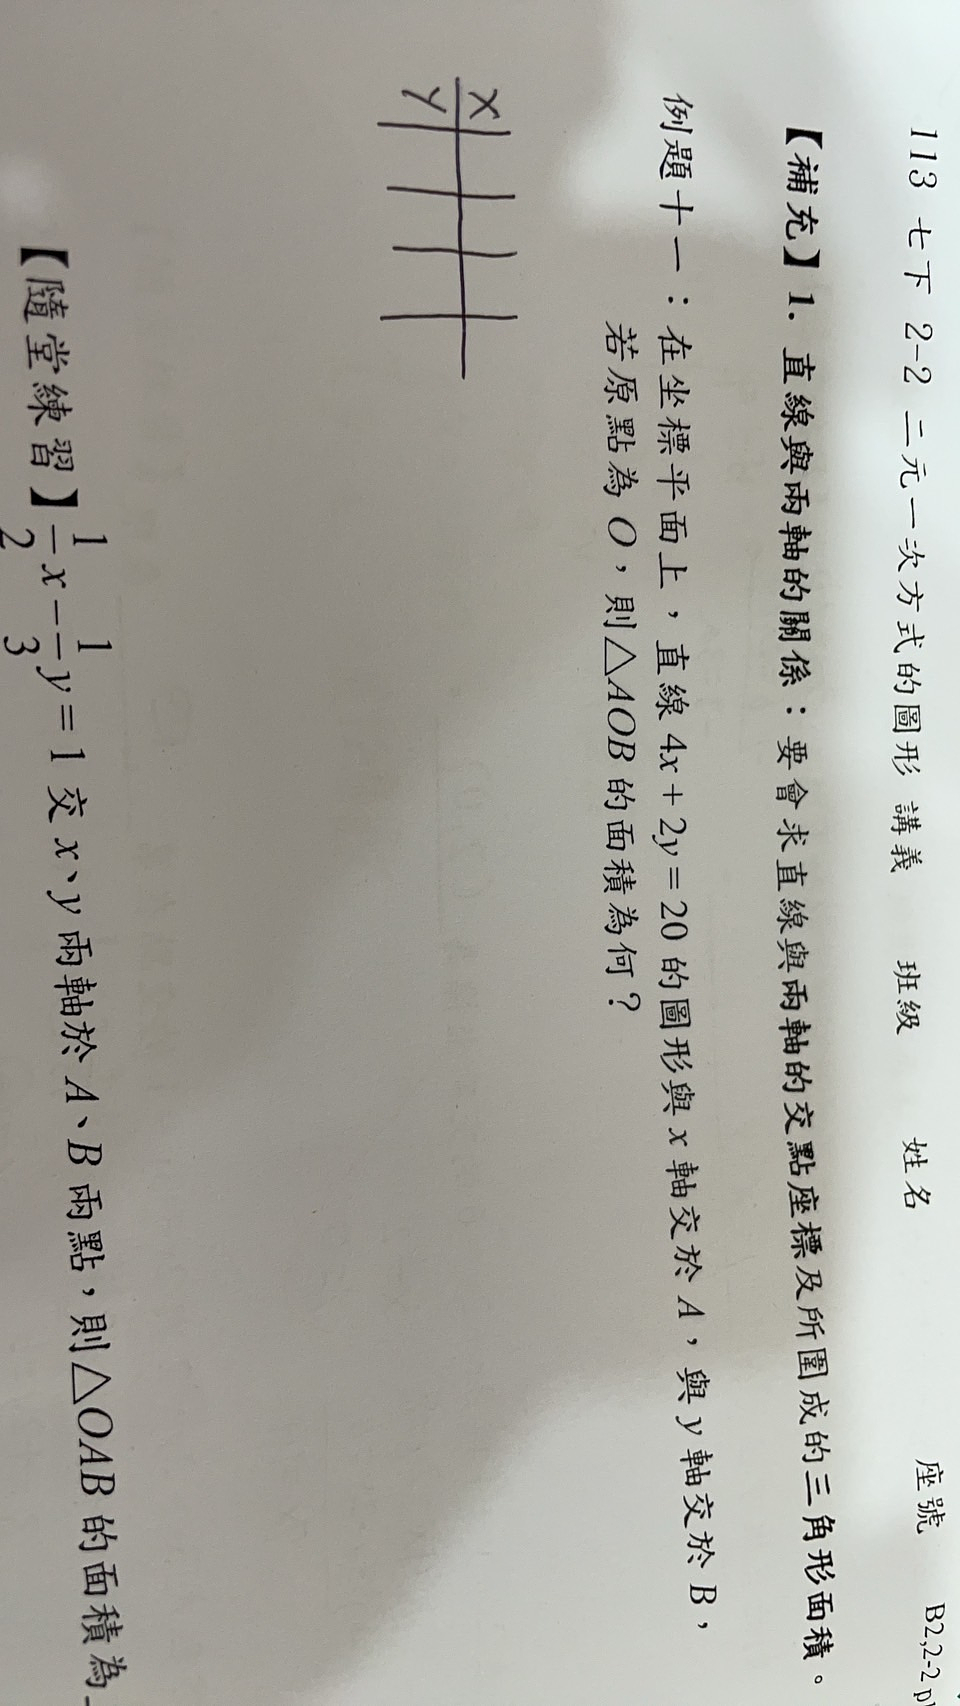 113 七下 2-2 二元一次方式的圖形 講義 班級 姓名 座號 B2,2-2
【補充】1. 直線與兩軸的關係：要會求直線與兩軸的交點座標及所圍成的三角形面積。
例題十一：在坐標平面上，直線 4x + 2y = 20 的圖形與 x 軸交於 A，與 y 軸交於 B，
若原點為 O，則△AOB 的面積為何？
x
y
【隨堂練習】1/2 x − 1/3 y = 1 交 x、y 兩軸於 A、B 兩點，則△OAB 的面積為